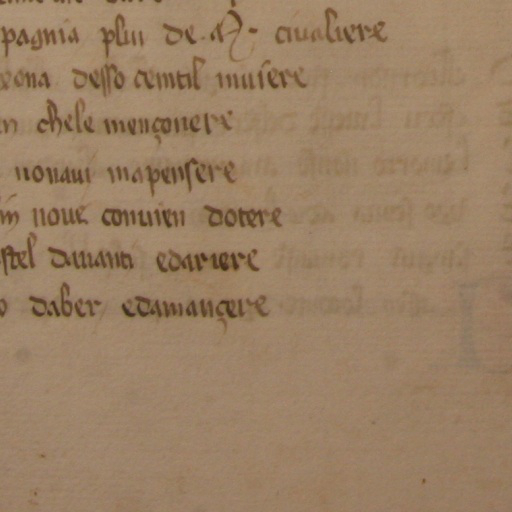 pagnia plui de .M. civaliere
eona desso centil muiere
n chele mençonere
nonaui inapensere
in noue conuien dotere
stel dauanti edariere
o daber edamançere